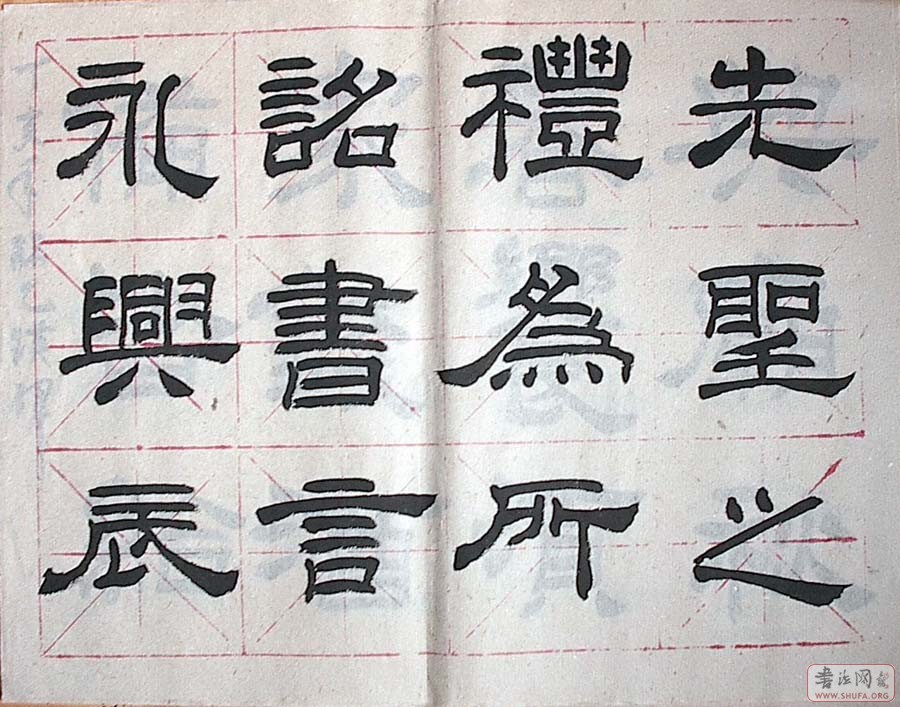 先聖之
禮為所
詔書言
永興辰
书法网
WWW.SHUFA.ORG